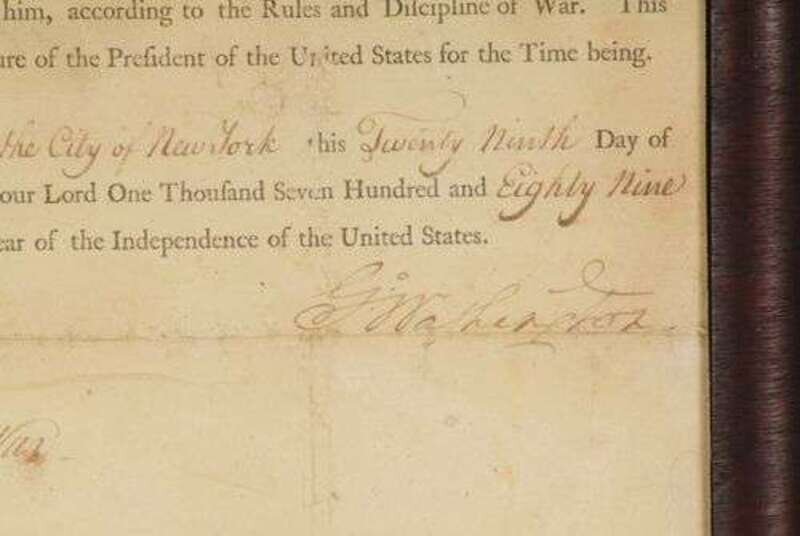 him, according to the Rules and Diſcipline of War. This
ure of the Preſident of the United States for the Time being.
the City of New York this Twenty Ninth Day of
our Lord One Thouſand Seven Hundred and Eighty Nine
ear of the Independence of the United States.
G:Washington
War